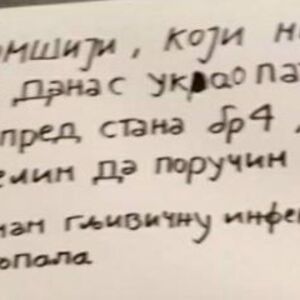 омшији, који м
данас украо па
пред стана бр4,
елим да поручим
мам гљивичну инфе
опала